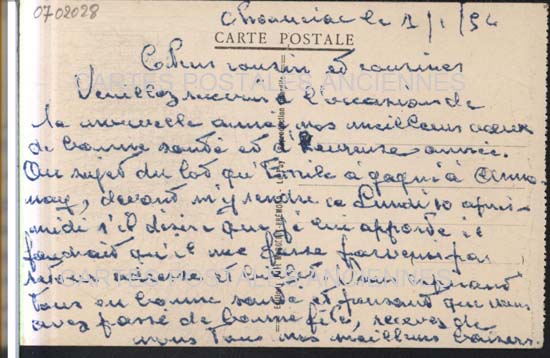 0702028
le 1/1/54
CARTE POSTALE
Chers cousin et cousines
Veuillez recevoir à l'occasion de
la nouvelle année nos meilleurs vœux
de bonne santé et d'heureuse année.
Au sujet du lot qu'Emile à gagné à Anno-
nay, devant m'y rendre ce Lundi 10 après-
midi s'il désire que je lui apporte il
faudrait qu'il me fasse parvenir par
son adresse
tous en bonne santé et pensant que vous
avez passé de bonne fête, recevez de
nous tous nos meilleurs baisers.
CARTES POSTALES ANCIENNES
CARTES POSTALES ANCIENNES